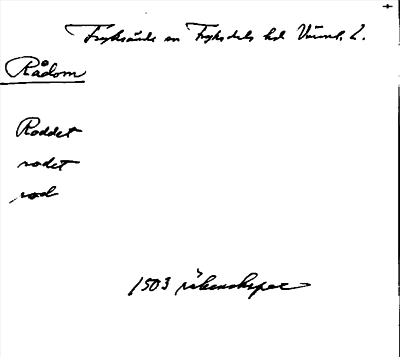 Fryksände sn Fryksdals hd Värml. l.
Rådom
Roddet
rodet
rod
1503 räkenskaper